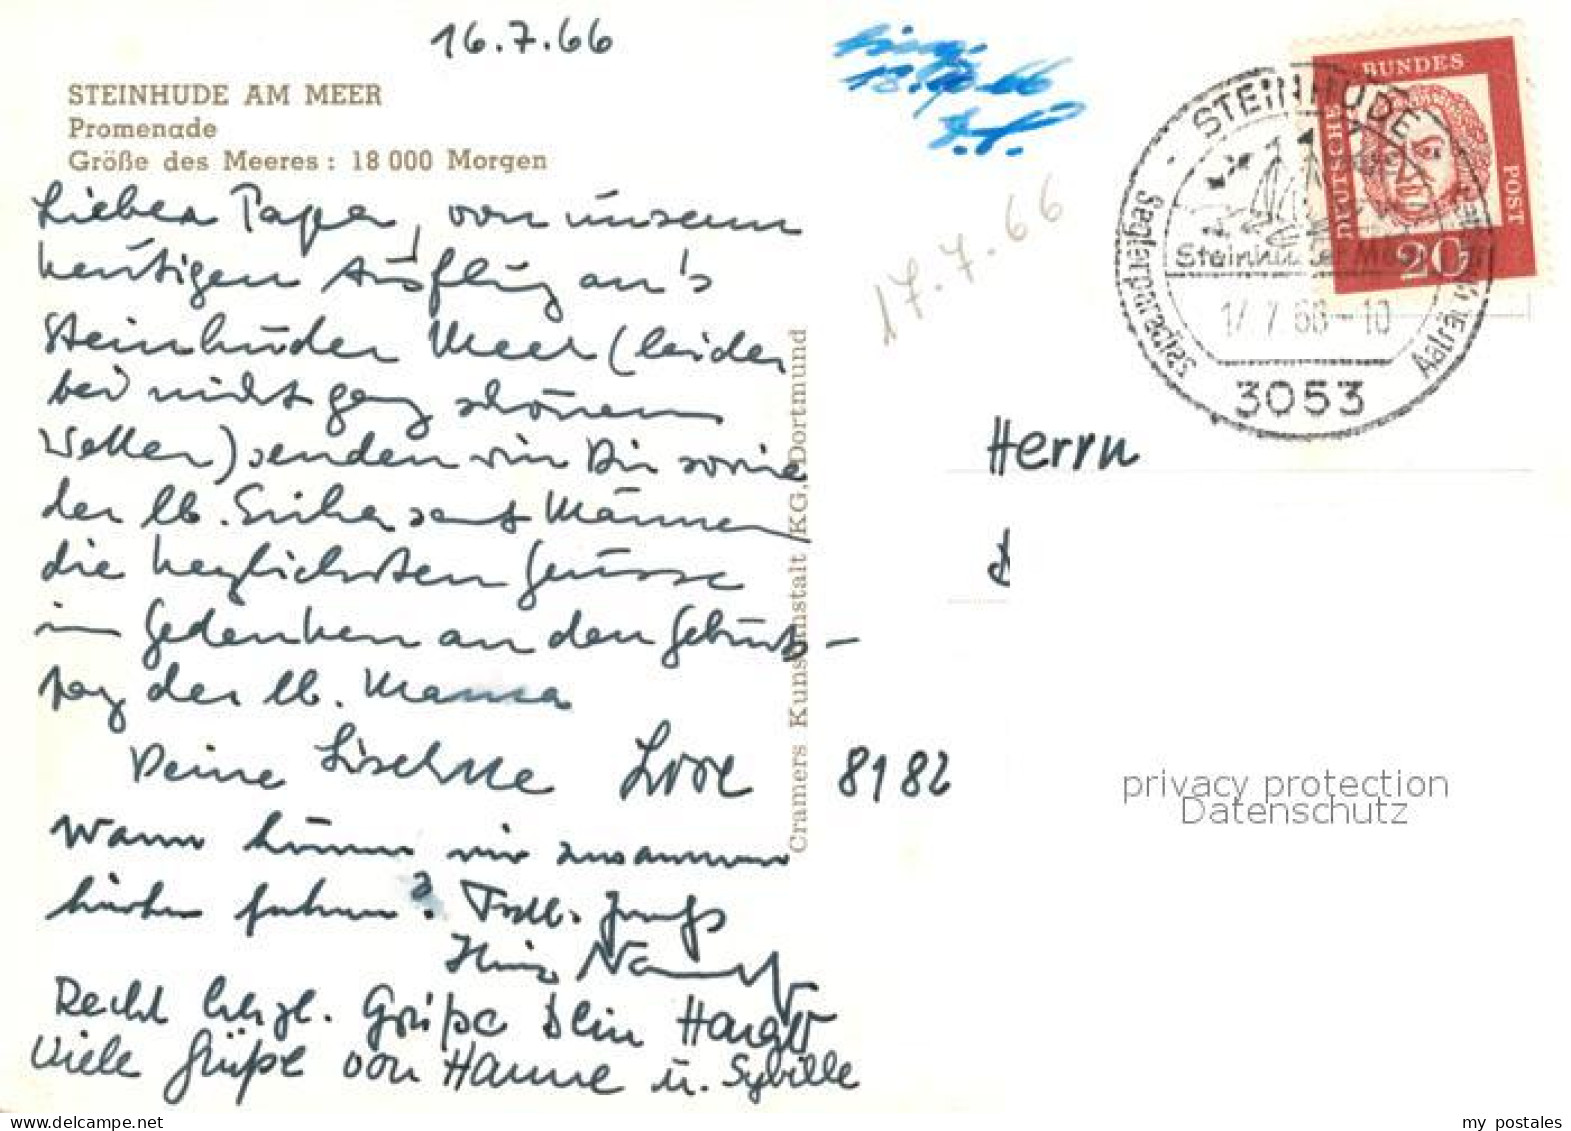 16.7.66
STEINHUDE AM MEER
Promenade
Größe des Meeres: 18 000 Morgen
Lieber Papa, von unserm
heutigen Ausflug an's
Steinhuder Meer (leider
bei nicht ganz schönem
Wetter) senden wir Dir sowie
der lb. Erika samt Männer
die herzlichsten Grüsse
im Gedenken an den Geburts-
tag der lb. Mama
Deine Lieselotte Lore
Wann können wir zusammen
hierher fahren? Frdl.
Heinz
Recht herzl. Grüße Dein
Viele Grüße von Hanne u. Sybille
Cramers Kunstanstalt KG, Dortmund
18. 66
17.7.66
STEINHUDE
Seglerparadies
Steinhuder Meer
17.7.66-10
3053
DEUTSCHE
BUNDES
POST
20
Herrn
8182
privacy protection
Datenschutz
my postales